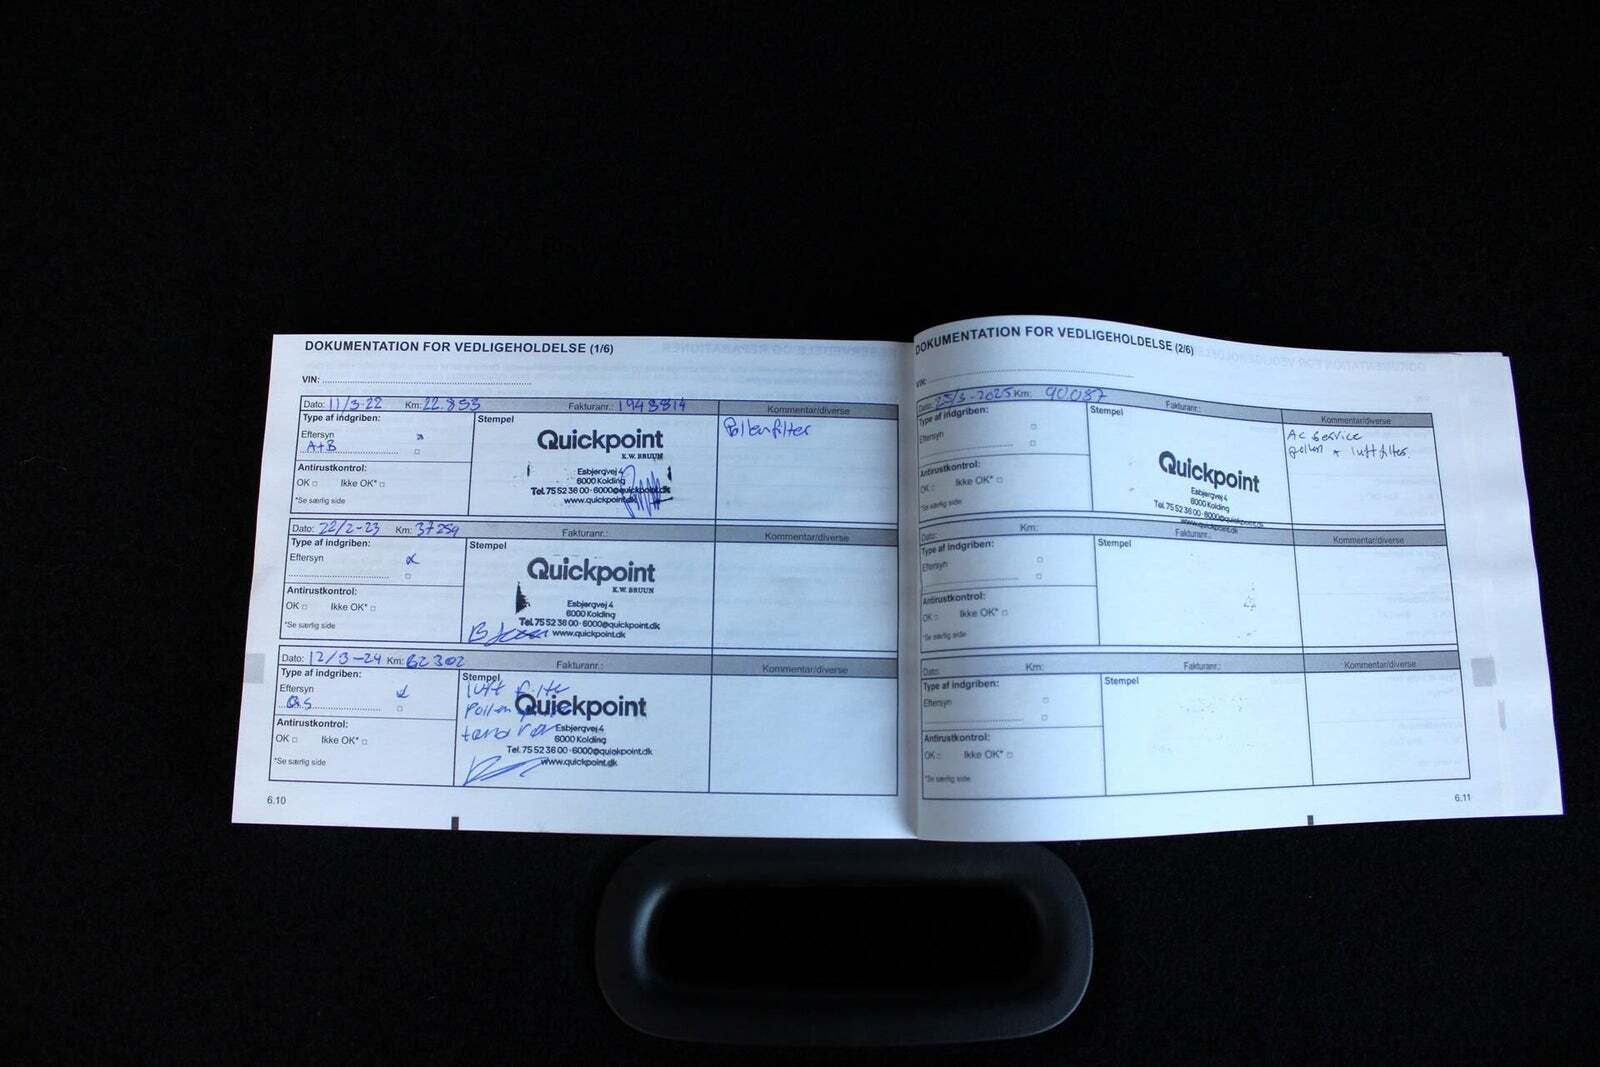 DOKUMENTATION FOR VEDLIGEHOLDELSE (1/6)
VIN:
Dato: 11/3-22 Km: 22.853 Fakturanr.: 1943814 Kommentar/diverse
Type af indgriben:
Eftersyn
A+B
Antirustkontrol:
OK Ikke OK*
*Se særlig side
Stempel
Quickpoint
K.W. BRUUN
Esbjergvej 4
6000 Kolding
Tel. 75 52 36 00 · 6000@quickpoint.dk
www.quickpoint.dk
Pollenfilter
Dato: 22/2-23 Km: 37259 Fakturanr.: Kommentar/diverse
Type af indgriben:
Eftersyn
Antirustkontrol:
OK Ikke OK*
*Se særlig side
Stempel
Quickpoint
K.W. BRUUN
Esbjergvej 4
6000 Kolding
Tel. 75 52 36 00 · 6000@quickpoint.dk
www.quickpoint.dk
Dato: 12/3-24 Km: 62302 Fakturanr.: Kommentar/diverse
Type af indgriben:
Eftersyn
Antirustkontrol:
OK Ikke OK*
*Se særlig side
Stempel
luft filte
Pollen
Quickpoint
Esbjergvej 4
6000 Kolding
Tel. 75 52 36 00 · 6000@quickpoint.dk
www.quickpoint.dk
6.10
DOKUMENTATION FOR VEDLIGEHOLDELSE (2/6)
VIN:
Dato: 25/3-2025 Km: 90.087 Fakturanr.: Kommentar/diverse
Type af indgriben:
Eftersyn
Antirustkontrol:
OK Ikke OK*
*Se særlig side
Stempel
Quickpoint
Esbjergvej 4
6000 Kolding
Tel. 75 52 36 00 · 6000@quickpoint.dk
www.quickpoint.dk
AC service
pollen + luftfilter.
Dato: Km: Fakturanr.: Kommentar/diverse
Type af indgriben:
Eftersyn
Antirustkontrol:
OK Ikke OK*
*Se særlig side
Stempel
Dato: Km: Fakturanr.: Kommentar/diverse
Type af indgriben:
Eftersyn
Antirustkontrol:
OK Ikke OK*
*Se særlig side
Stempel
6.11